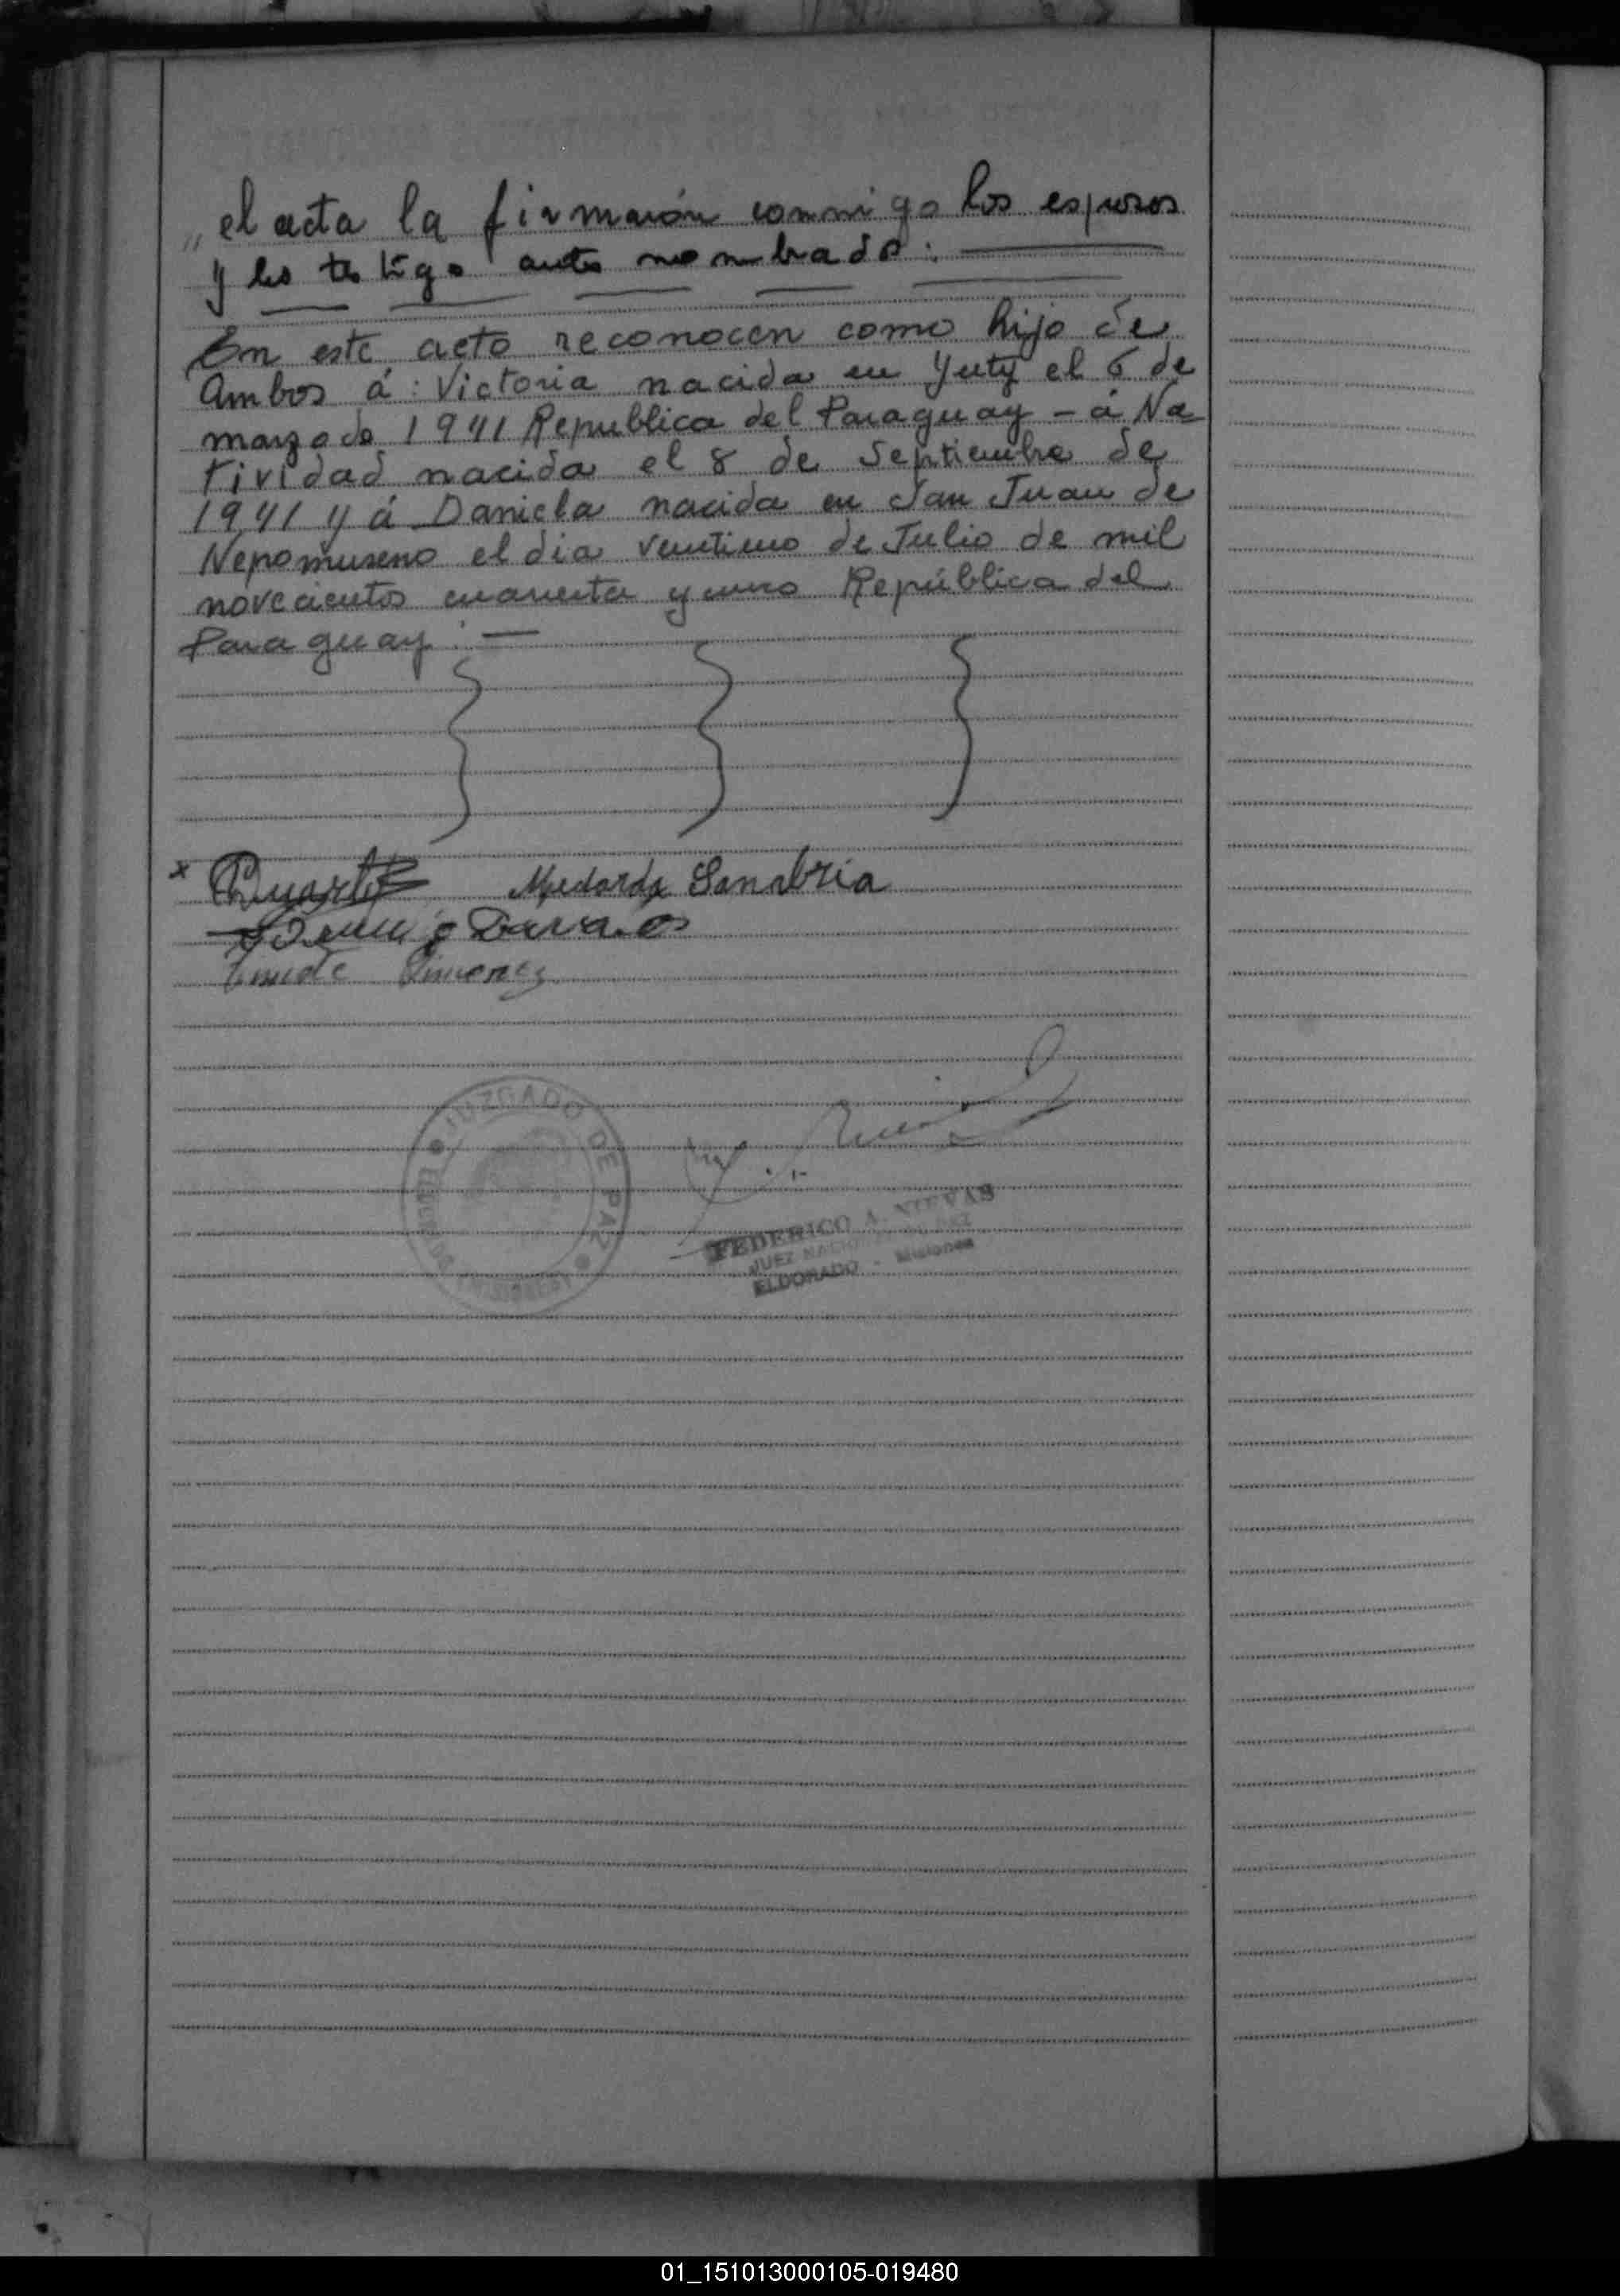 " el acta la firmarón conmigo los esposos
y los testigo antes nombrado: —
En este acto reconocen como hijo de
Ambos á: Victoria nacida en Yuty el 6 de
marzo de 1941 Republica del Paraguay - á Na-
tividad nacida el 8 de Septiembre de
1941 y á Daniela nacida en San Juan de
Nepomuseno el dia ventiuno de Julio de mil
novecientos cuarenta y uno República del
Paraguay: —
x Duarte Medarda Sanabria
Davalos
Jimenez
JUZGADO DE PAZ
FEDERICO A. NIEVAS
JUEZ
ELDORADO - Misiones
01_151013000105-019480